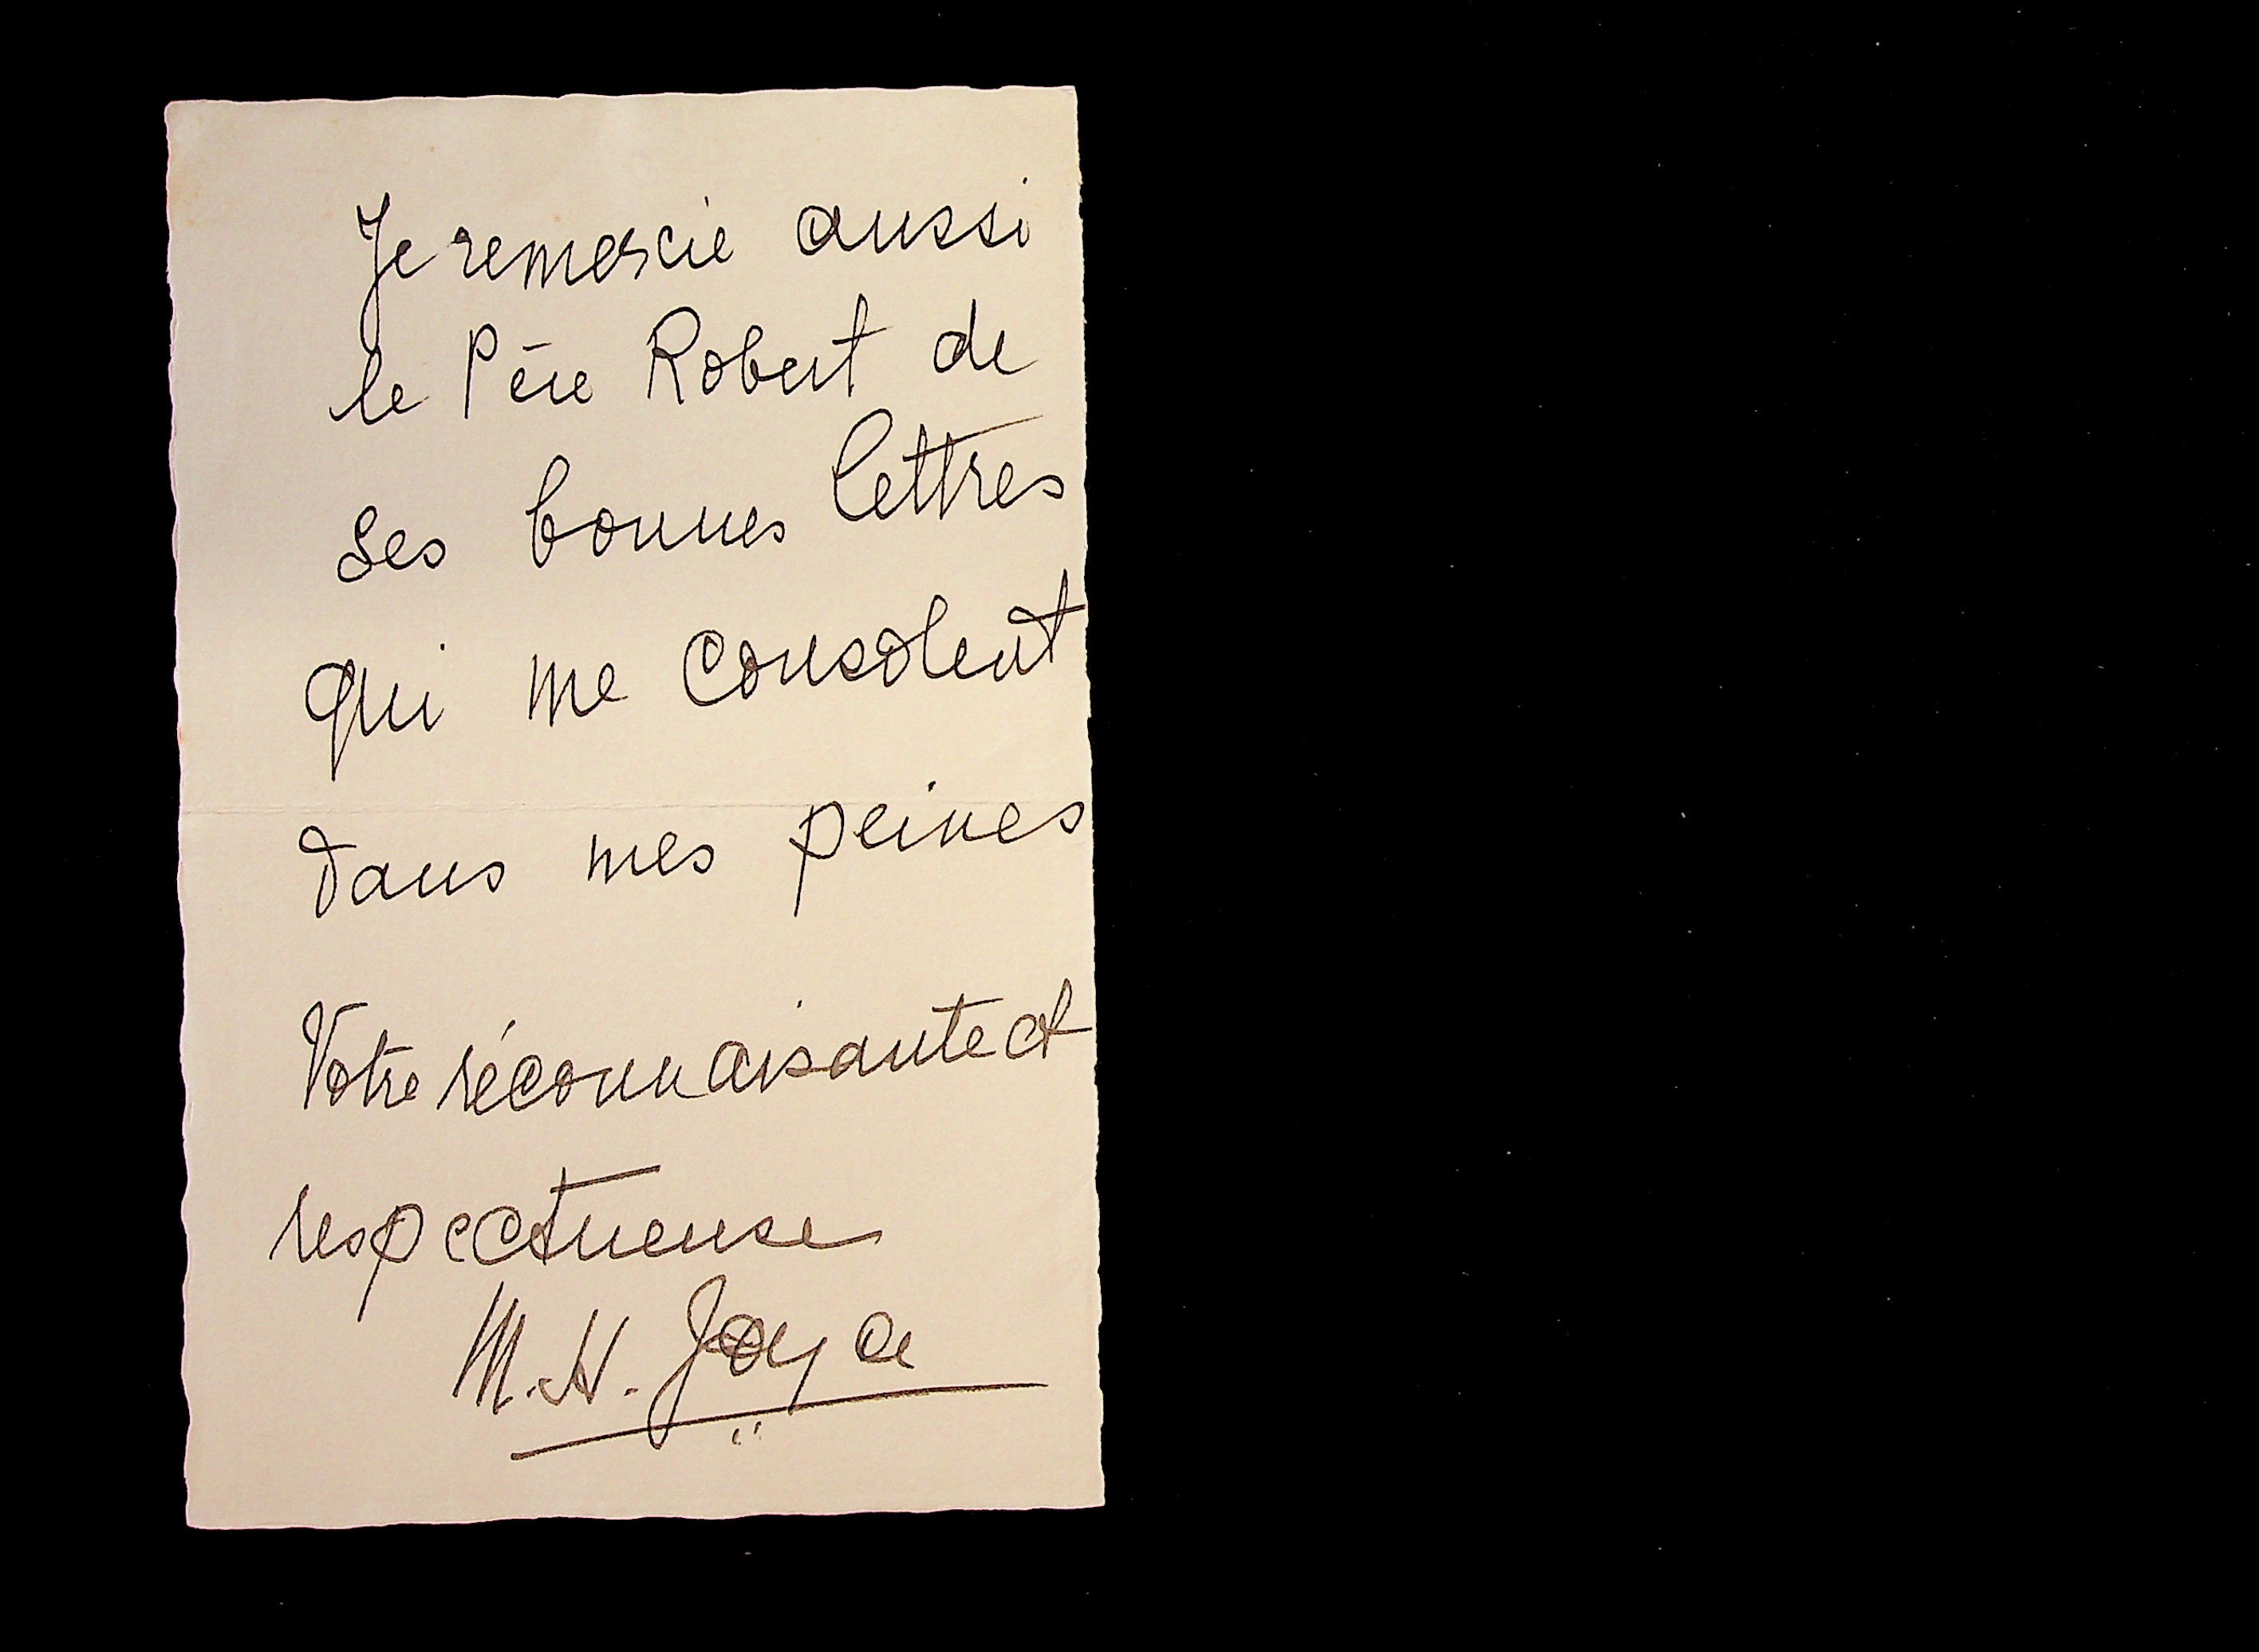 Je remercie aussi
le Père Robert de
ses bonnes lettres
qui me consolent
dans mes peines
Votre réconnaisante et
respectueuse
M. H. Joyce